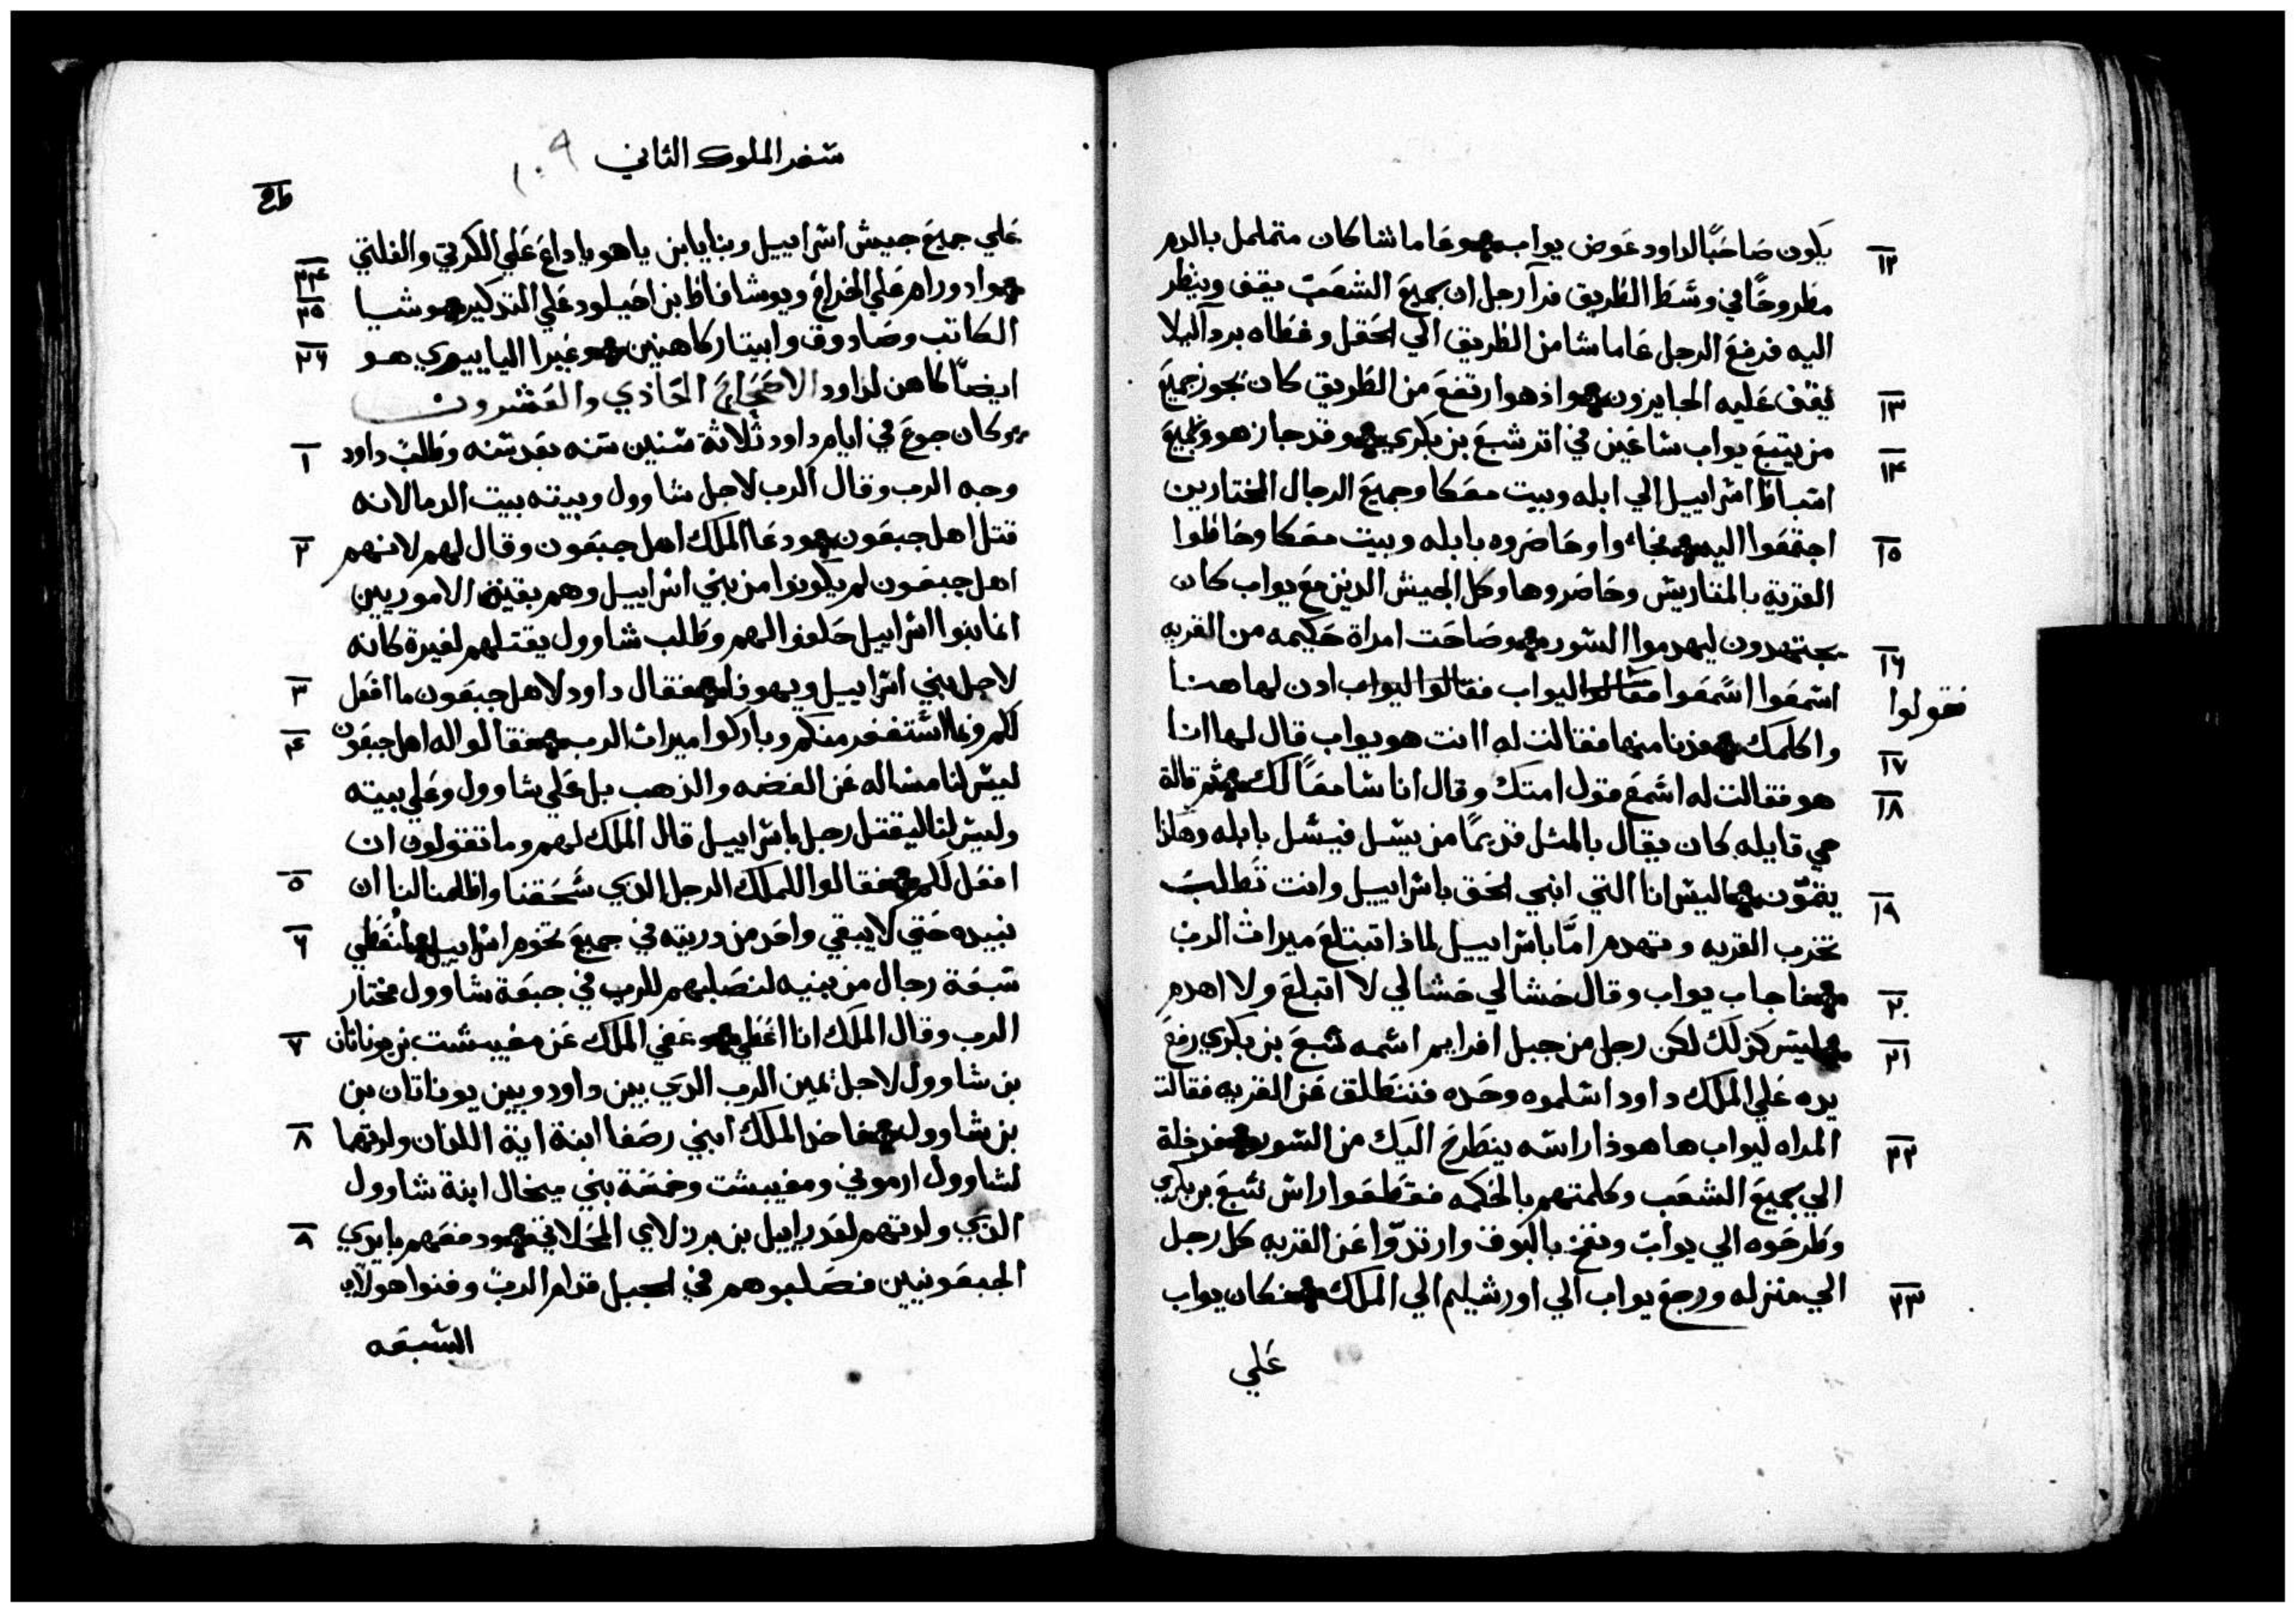 يكون صاحبًا لداود عوض يواب وعاماشا كان متململ بالدم
١٢
مطروحًا في وسط الطريق فرآ رجل ان جميع الشعب يقف وينظر
اليه فرفع الرجل عاماشا من الطريق الي الحقل وغطاه بردآ ليلا
يقف عليه الجايزون واذ هو ارتفع من الطريق كان يجوز جميع
١٣
من يتبع يواب ساعين في اتر شبع بن بكري وقد جاز هو وجميع
١٤
اتباط اسراييل الي ابله وبيت معكا وجميع الرجال المختارين
اجتمعوا اليه فجاءوا وحاصروه بابله وبيت معكا وحاطوا
١٥
القرية بالمتاريس وحاصروها وكل الجيش الدين مع يواب كان
يجتهدون ليهدموا السور وصاحت امراة حكيمه من القريه
١٦
اسمعوا اسمعوا فقالوا ليواب فقالوا ليواب ادن لها هنا
فقولوا
واكلمك فدنا منها فقالت له اانت هو يواب قال لها انا
١٧
هو فقالت له اسمع قول امتك وقال انا سامعًا لك ثم قالة
١٨
هي قايله كان يقال بالمثل قديمًا من يسل فيسل بابله وهكذا
يتمون اليس انا التي ابني الحق باسراييل وانت تطلب
١٩
تخرب القريه وتهدم امًا باسراييل لماذا تبتلع ميراث الرب
فاجاب يواب وقال حشا لي حشا لي لا ابتلع ولا اهدم
٢٠
ليس كزلك لكن رجل من جبل افرايم اسمه شبع بن بكري رفع
٢١
يده علي الملك داود اسلموه وحده فننطلق عن القريه فقالت
المراه ليواب ها هوذا راسه ينطرح اليك من السور فدخلة
٢٢
الي جميع الشعب وكلمتهم بالحكمه فقطعوا راس شبع بن بكري
وطرحوه الي يواب ونفخ بالبوق وارتدّوا عن القريه كل رجل
الي منزله ورجع يواب الي اورشيليم الي الملك فكان يواب
٢٣
علي
سفر الملوك الثاني
١٠٩
علي جميع جيش اسراييل وبنايا بن ياهوياداع علي الكرتي والفلتي
وادورام علي الخراج ويوشافاظ بن احيلود علي التدكير وشيا
٢٤
٢٥
الكاتب وصادوق وابيتار كاهنين وعيرا الياييري هو
٢٦
ايضًا كاهن لداود الاصحاح الحادي والعشرون
وكان جوع في ايام داود ثلاثة سنين سنه بعد سنه وطلب داود
١
وجه الرب وقال الرب لاجل شاوول وبيته بيت الدما لانه
قتل اهل جبعون ودعا الملك اهل جبعون وقال لهم لانهم
٢
اهل جبعون لم يكونوا من بني اسراييل وهم بقية الاموريين
انما بنوا اسراييل حلفوا لهم وطلب شاوول يقتلهم لغيرة كانه
لاجل بني اسراييل ويهوذا فقال داود لاهل جبعون ما افعل
٣
لكم وبما استغفر منكم وباركوا ميراث الرب فقالوا له اهل جبعون
٤
ليس لنا مساله عن الفضه والذهب بل علي شاوول وعلي بيته
وليس لنا ليقتل رجل باسراييل قال الملك لهم وما تقولون ان
افعل لكم فقالوا للملك الرجل الدي سحقنا واظلمنا لنا ان
٥
نبيده حتي لا يبقي واحد من دريته في جميع تخوم اسراييل لنعطي
٦
سبعة رجال من بنيه لنصلبهم للرب في جبعة شاوول مختار
الرب وقال الملك انا اعطي وعفي الملك عن مفيبشت بن يوناتان
٧
بن شاوول لاجل يمين الرب الدي بين داود وبين يوناتان بن
بن شاوول فاخذ الملك ابني رصفا ابنة اية اللذان ولدتهما
٨
لشاوول ارموني ومفيبشت وخمسة بني ميخال ابنة شاوول
الذي ولدتهم لعدراييل بن برزلاي المحلاتي ودفعهم بايدي
٨
الجبعونيين فصلبوهم في الجبل قدام الرب وفنوا هولاي
السبعه